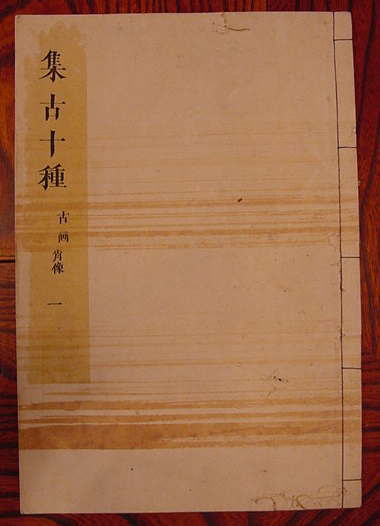 集古十種
古画肖像
一